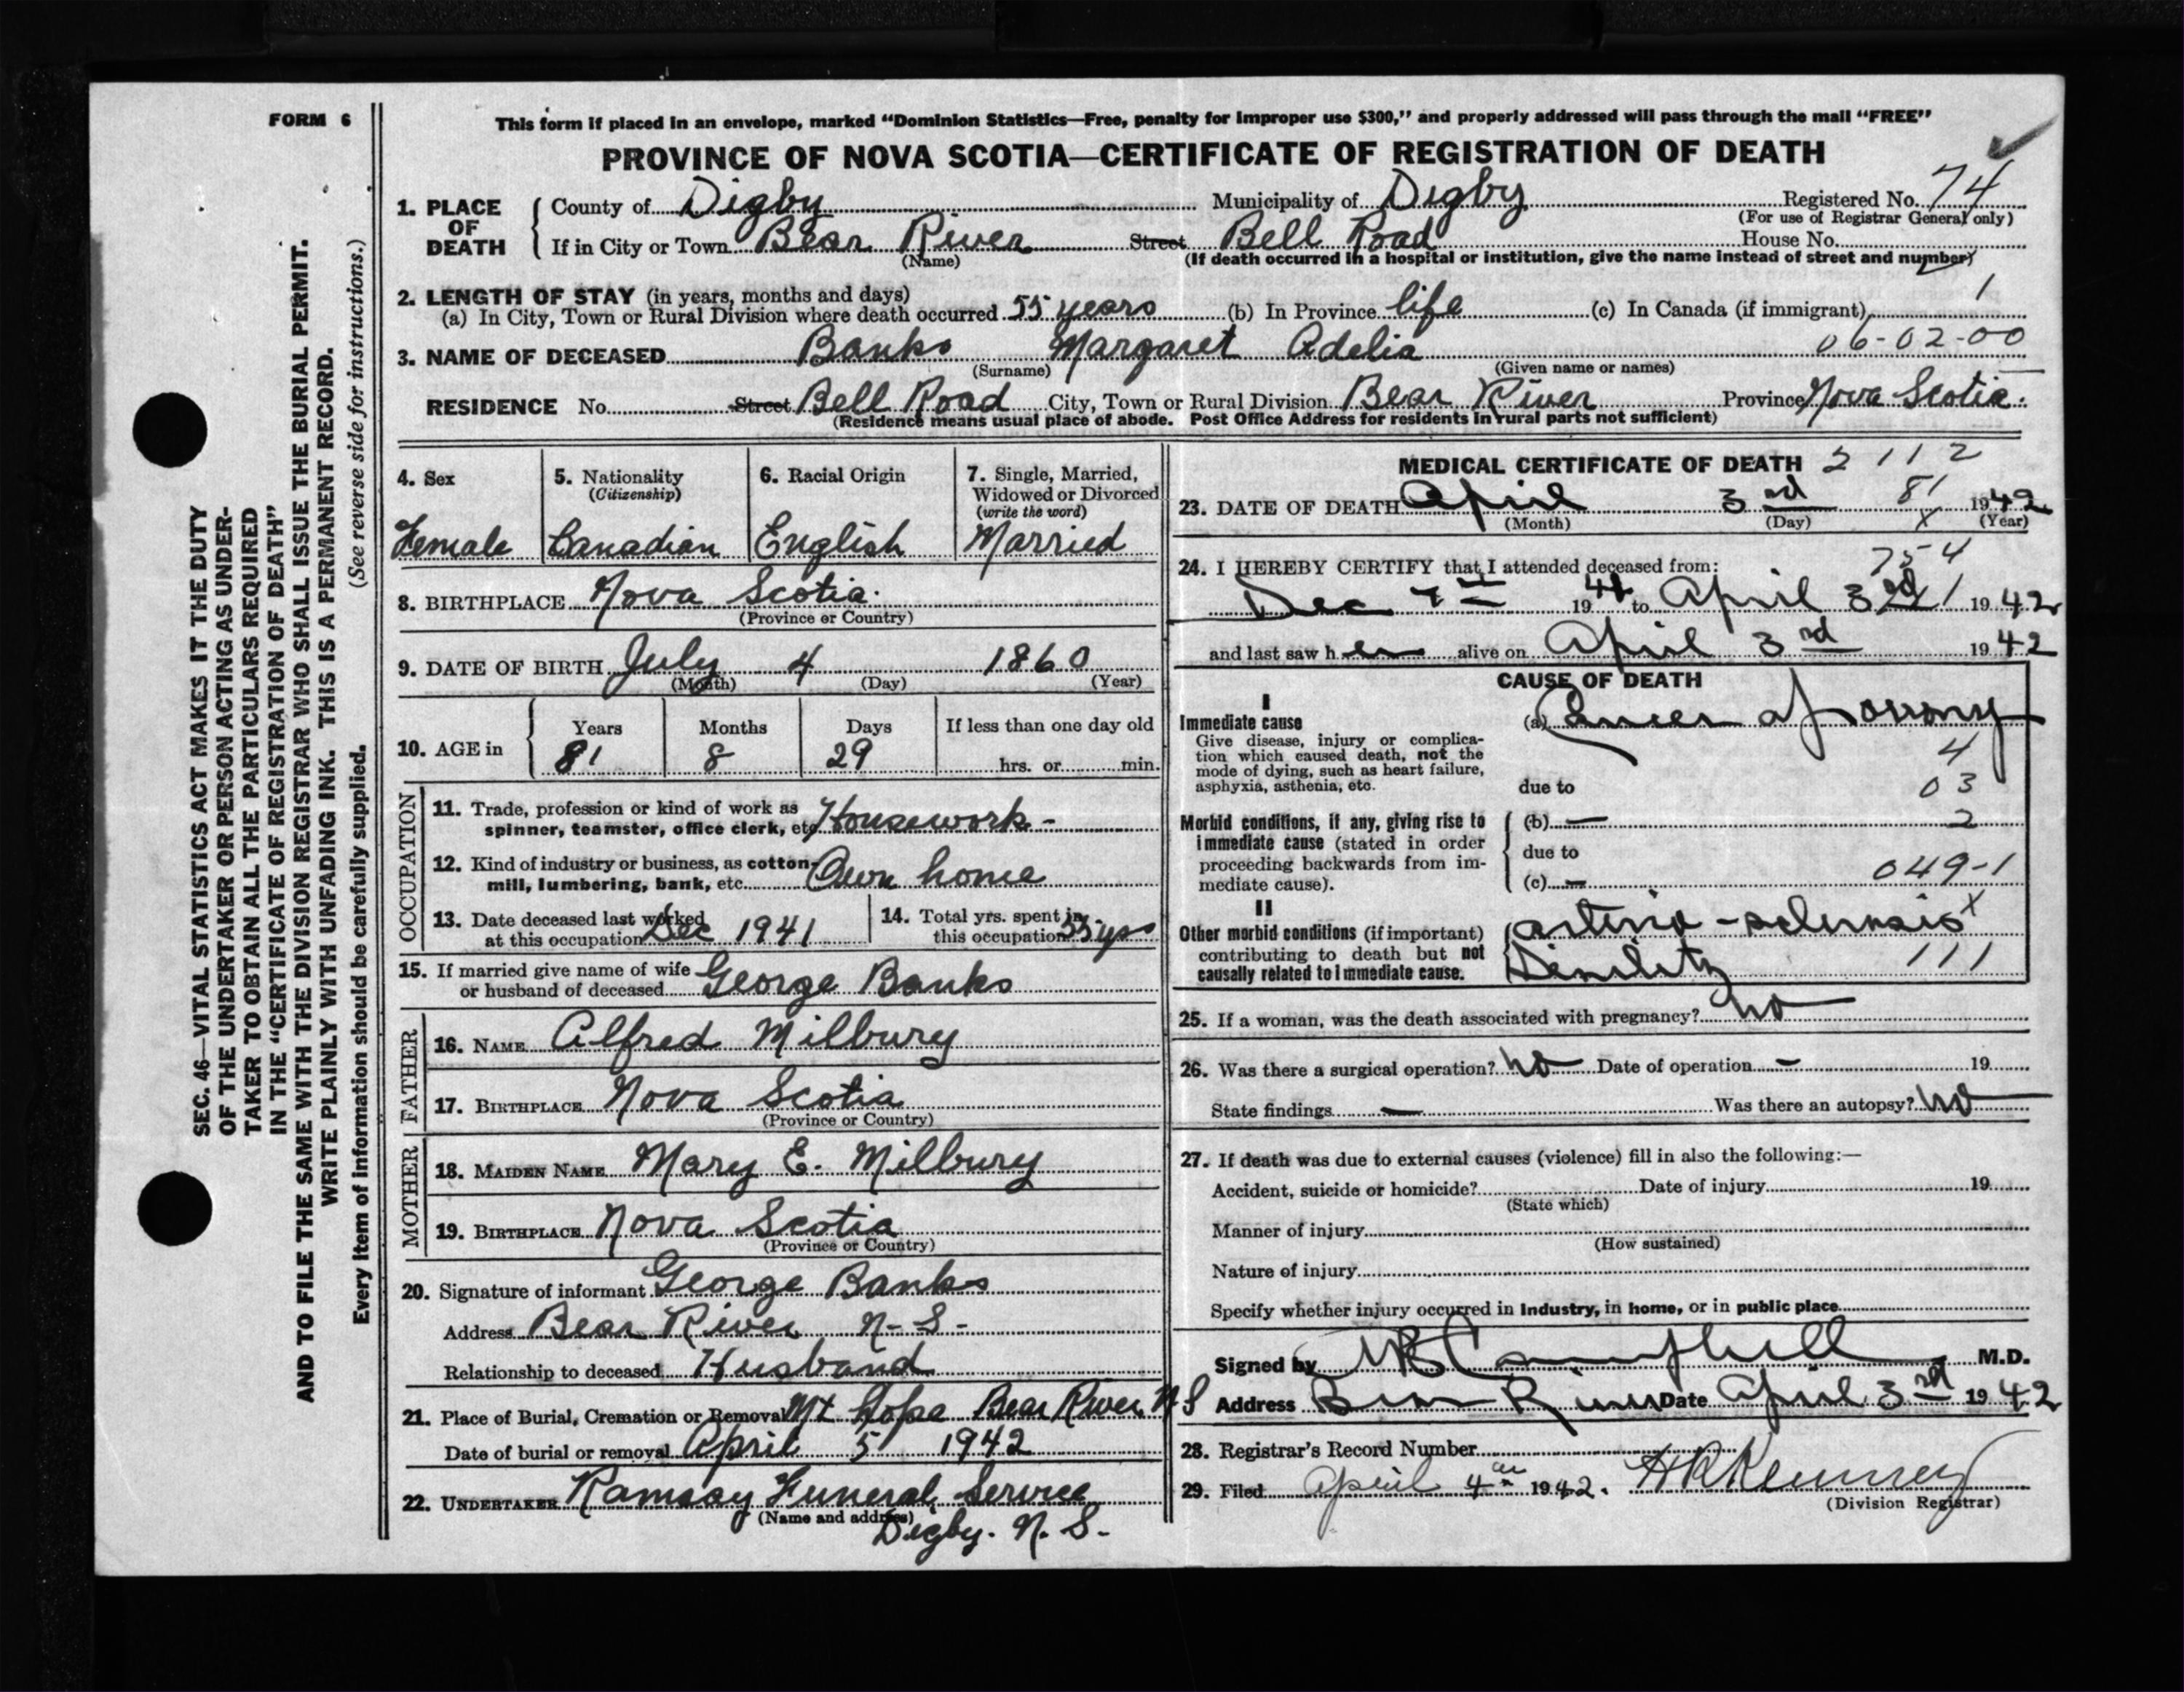 FORM 6
This form if placed in an envelope, marked “Dominion Statistics—Free, penalty for improper use $300,” and properly addressed will pass through the mail “FREE”
PROVINCE OF NOVA SCOTIA—CERTIFICATE OF REGISTRATION OF DEATH
1. PLACE OF DEATH
County of Digby Municipality of Digby Registered No. 74
(For use of Registrar General only)
If in City or Town Bear River Street Bell Road House No.
(Name) (If death occurred in a hospital or institution, give the name instead of street and number)
2. LENGTH OF STAY (in years, months and days) 1
(a) In City, Town or Rural Division where death occurred 55 years (b) In Province life (c) In Canada (if immigrant)
3. NAME OF DECEASED Banks Margaret Adelia 06-02-00
(Surname) (Given name or names)
RESIDENCE No. Street Bell Road City, Town or Rural Division Bear River Province Nova Scotia.
(Residence means usual place of abode. Post Office Address for residents in rural parts not sufficient)
4. Sex
Female
5. Nationality
(Citizenship)
Canadian
6. Racial Origin
English
7. Single, Married,
Widowed or Divorced
(write the word)
Married
8. BIRTHPLACE Nova Scotia.
(Province or Country)
9. DATE OF BIRTH July 4 1860
(Month) (Day) (Year)
10. AGE in
Years Months Days If less than one day old
81 8 29 hrs. or min.
OCCUPATION
11. Trade, profession or kind of work as
spinner, teamster, office clerk, etc. Housework -
12. Kind of industry or business, as cotton-
mill, lumbering, bank, etc. Own home
13. Date deceased last worked
at this occupation Dec 1941
14. Total yrs. spent in
this occupation 55 yrs
15. If married give name of wife
or husband of deceased George Banks
FATHER
16. NAME Alfred Milbury
17. BIRTHPLACE Nova Scotia
(Province or Country)
MOTHER
18. MAIDEN NAME Mary E. Milbury
19. BIRTHPLACE Nova Scotia
(Province or Country)
20. Signature of informant George Banks
Address Bear River N-S-
Relationship to deceased Husband
21. Place of Burial, Cremation or Removal Mt Hope Bear River N S
Date of burial or removal April 5 1942
22. UNDERTAKER Ramsay Funeral Service
(Name and address)
Digby. N. S.
MEDICAL CERTIFICATE OF DEATH 2 1 1 2
81
23. DATE OF DEATH April 3rd 1942
(Month) (Day) X (Year)
754
24. I HEREBY CERTIFY that I attended deceased from:
Dec 1941 to April 3rd 1942
and last saw her alive on April 3rd 1942
CAUSE OF DEATH
I
Immediate cause
Give disease, injury or complica-
tion which caused death, not the
mode of dying, such as heart failure,
asphyxia, asthenia, etc.
(a) Cancer of ovary
4
due to 03
Morbid conditions, if any, giving rise to
immediate cause (stated in order
proceeding backwards from im-
mediate cause).
(b) — 2
due to
(c) — 049-1
II
Other morbid conditions (if important)
contributing to death but not
causally related to immediate cause.
arterio-sclerosis X
Senility 111
25. If a woman, was the death associated with pregnancy? no
26. Was there a surgical operation? no Date of operation - 19
State findings — Was there an autopsy? no
27. If death was due to external causes (violence) fill in also the following:—
Accident, suicide or homicide? Date of injury 19
(State which)
Manner of injury
(How sustained)
Nature of injury
Specify whether injury occurred in Industry, in home, or in public place
Signed by Campbell M.D.
Address Bear River Date April 3rd 1942
28. Registrar's Record Number
29. Filed April 4th 1942.
(Division Registrar)
SEC. 46—VITAL STATISTICS ACT MAKES IT THE DUTY
OF THE UNDERTAKER OR PERSON ACTING AS UNDER-
TAKER TO OBTAIN ALL THE PARTICULARS REQUIRED
IN THE “CERTIFICATE OF REGISTRATION OF DEATH”
AND TO FILE THE SAME WITH THE DIVISION REGISTRAR WHO SHALL ISSUE THE BURIAL PERMIT.
WRITE PLAINLY WITH UNFADING INK. THIS IS A PERMANENT RECORD.
Every item of information should be carefully supplied. (See reverse side for instructions.)